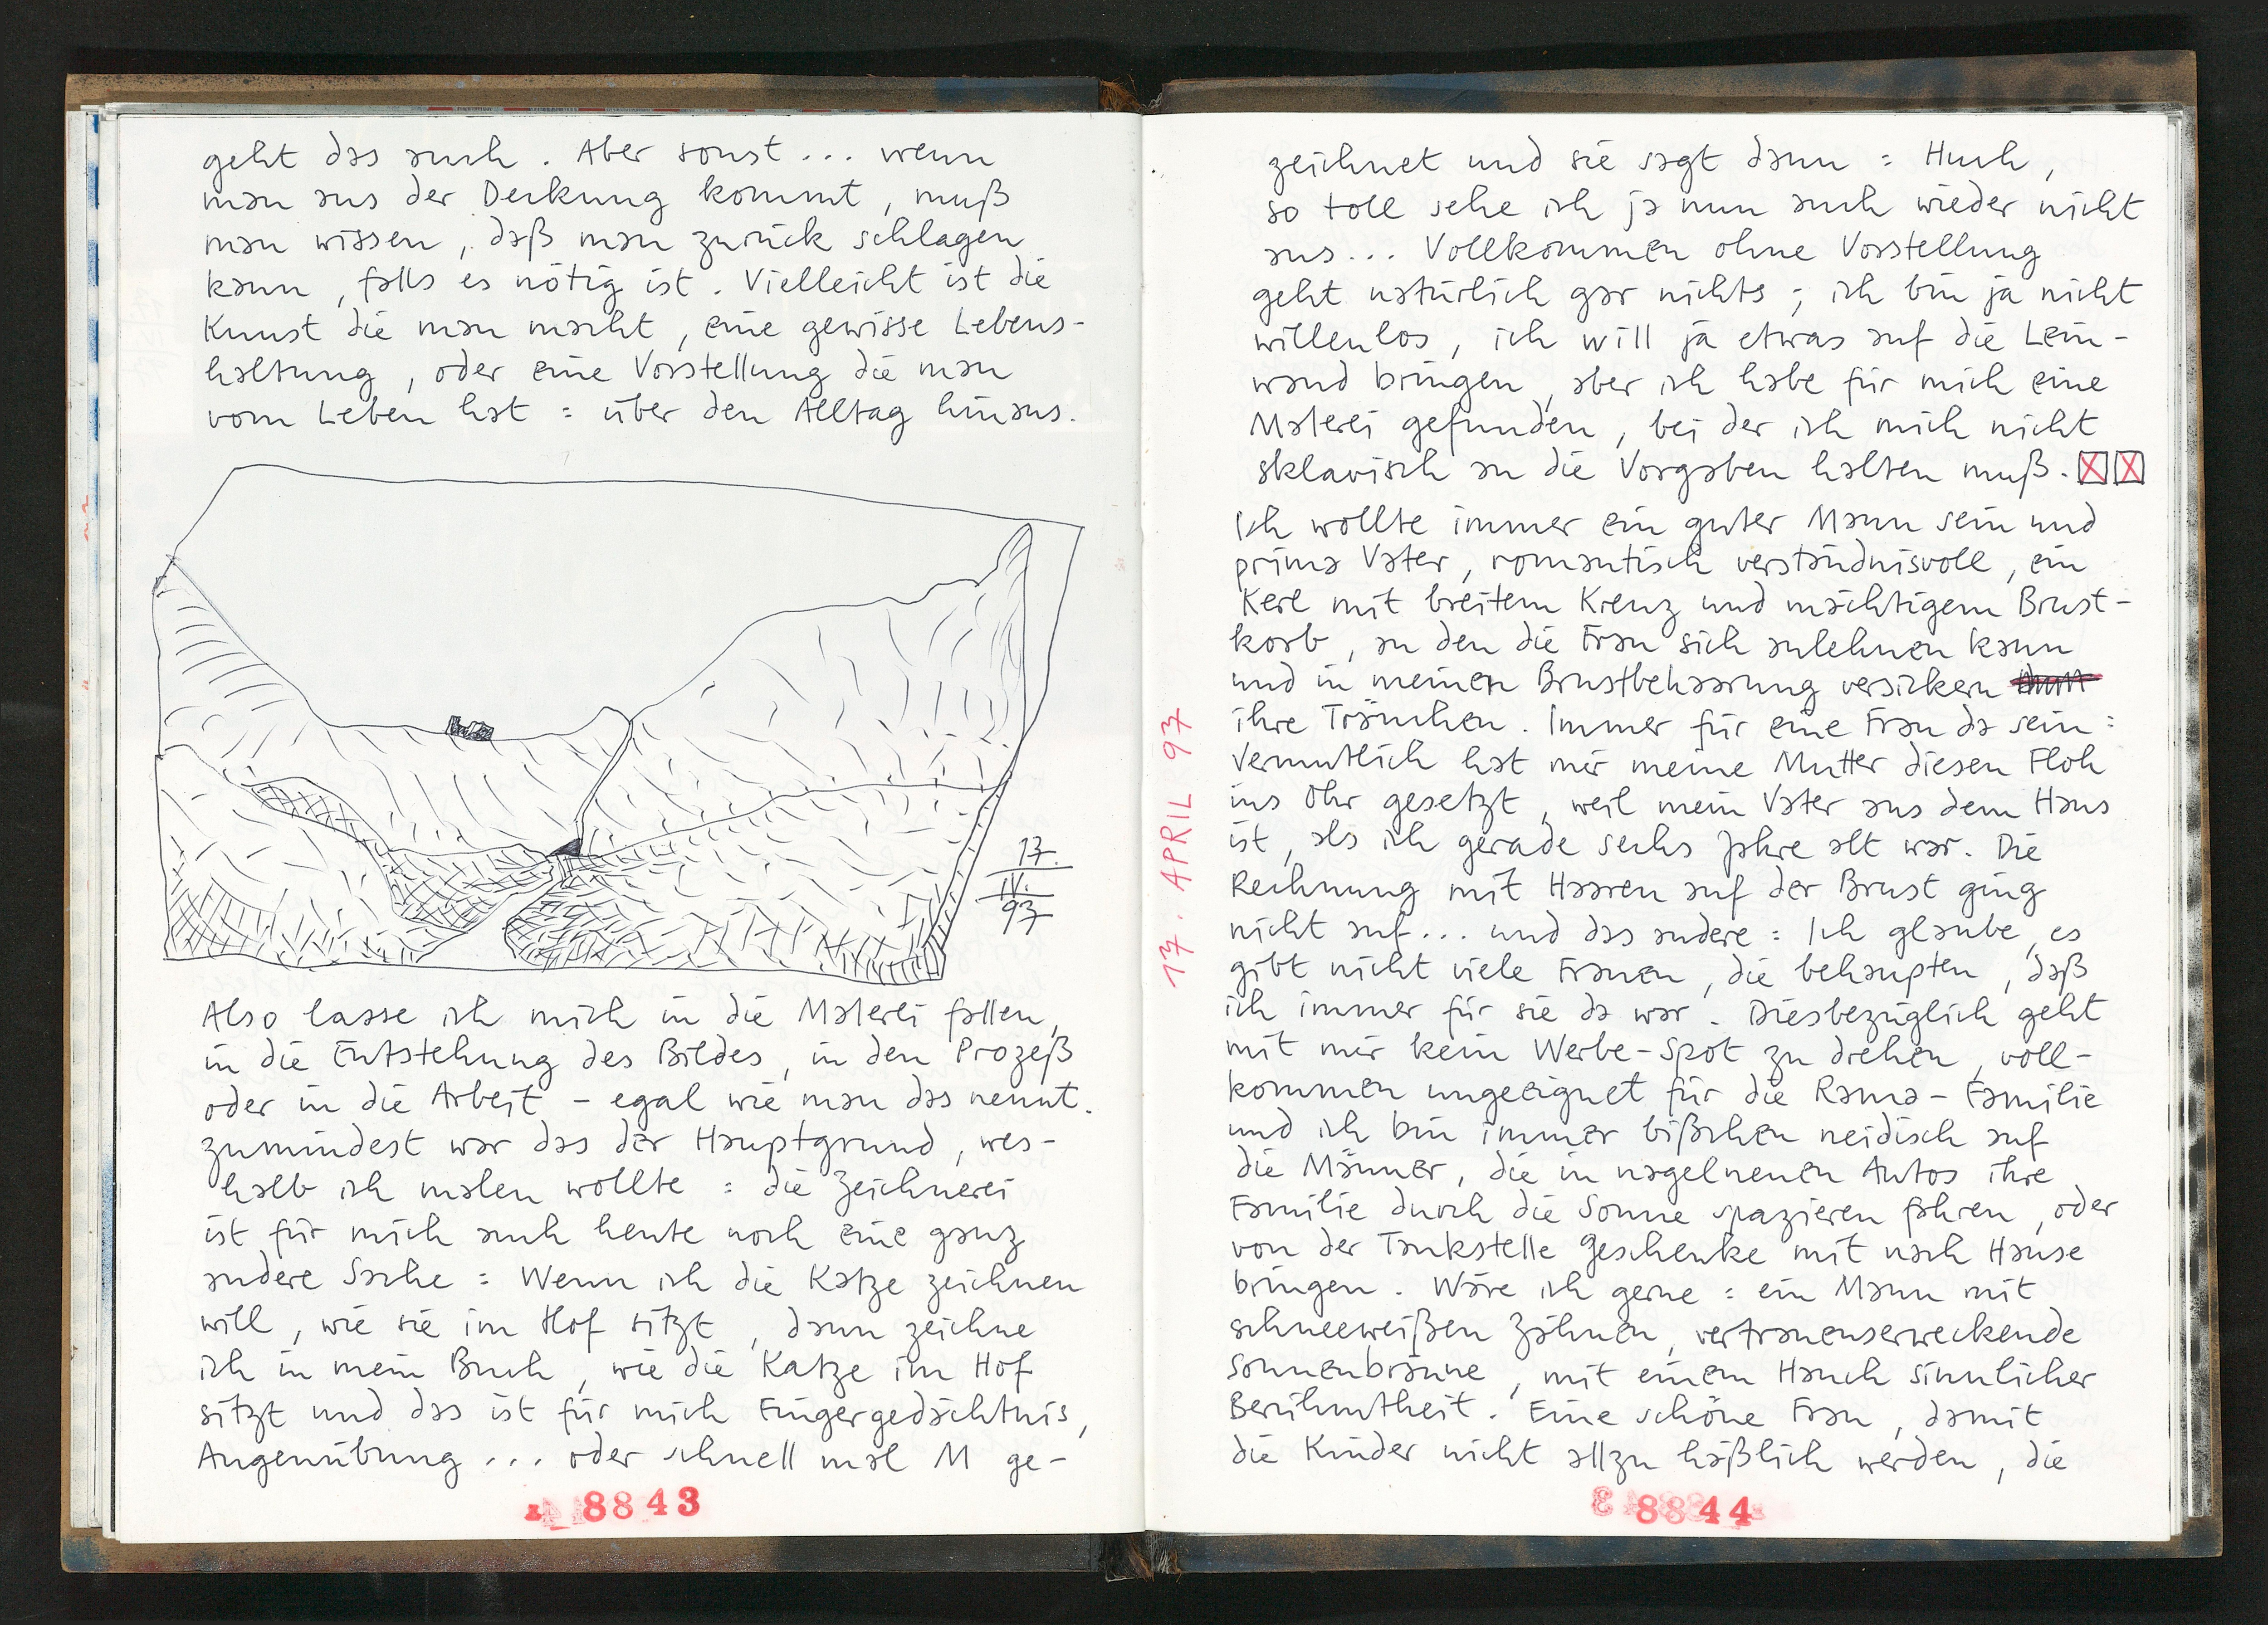 geht das auch. Aber sonst... wenn
man aus der Deckung kommt, muß
man wissen, daß man zurück schlagen
kann, falls es nötig ist. Vielleicht ist die
Kunst die man macht, eine gewisse Lebens-
haltung, oder eine Vorstellung die man
vom Leben hat: über den Alltag hinaus.
17.
IV.
97
Also lasse ich mich in die Malerei fallen,
in die Entstehung des Bildes, in den Prozeß
oder in die Arbeit - egal wie man das nennt.
zumindest war das der Hauptgrund, wes-
halb ich malen wollte: die Zeichnerei
ist für mich auch heute noch eine ganz
andere Sache: Wenn ich die Katze zeichnen
will, wie sie im Hof sitzt, dann zeichne
ich in mein Buch, wie die Katze im Hof
sitzt und das ist für mich Fingergedächtnis,
Augenübung... oder schnell mal M ge-
8843
17. APRIL 97
zeichnet und sie sagt dann: Huch,
so toll sehe ich ja nun auch wieder nicht
aus... Vollkommen ohne Vorstellung
geht natürlich gar nichts; ich bin ja nicht
willenlos, ich will ja etwas auf die Lein-
wand bringen, aber ich habe für mich eine
Malerei gefunden, bei der ich mich nicht
sklavisch an die Vorgaben halten muß.
Ich wollte immer ein guter Mann sein und
prima Vater, romantisch verständnisvoll, ein
Kerl mit breitem Kreuz und mächtigem Brust-
korb, an den die Frau sich anlehnen kann
und in meinen Brustbehaarung versickern
ihre Tränchen. Immer für eine Frau da sein:
Vermutlich hat mir meine Mutter diesen Floh
ins Ohr gesetzt, weil mein Vater aus dem Haus
ist, als ich gerade sechs Jahre alt war. Die
Rechnung mit Haaren auf der Brust ging
nicht auf... und das andere: Ich glaube, es
gibt nicht viele Frauen, die behaupten, daß
ich immer für sie da war. Diesbezüglich geht
mit mir kein Werbe-Spot zu drehen, voll-
kommen ungeeignet für die Rama-Familie
und ich bin immer bißchen neidisch auf
die Männer, die in nagelneuen Autos ihre
Familie durch die Sonne spazieren fahren, oder
von der Tankstelle Geschenke mit nach Hause
bringen. Wäre ich gerne: ein Mann mit
schneeweißen Zähnen, vertrauenserweckende
Sonnenbräune, mit einem Hauch sinnlicher
Berühmtheit. Eine schöne Frau, damit
die Kinder nicht allzu häßlich werden, die
8844